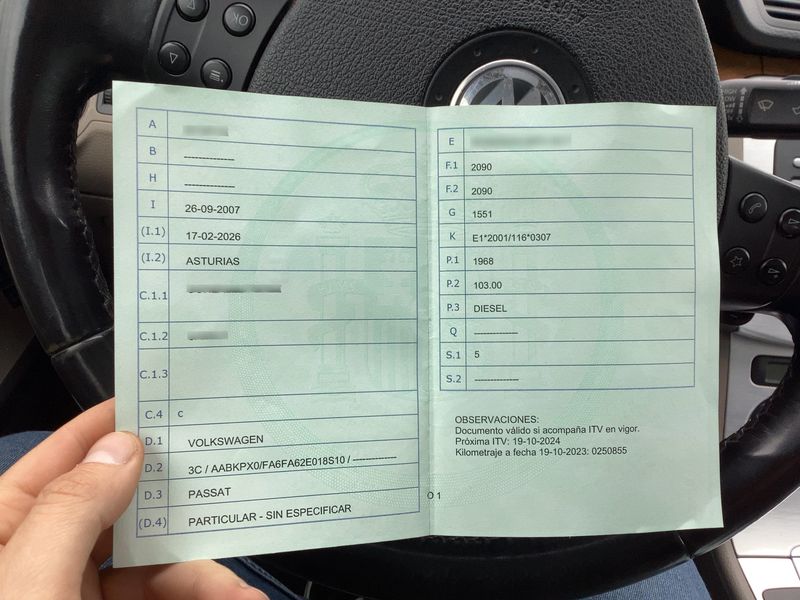 OK
A
B --------------
H --------------
I 26-09-2007
(I.1) 17-02-2026
(I.2) ASTURIAS
C.1.1
C.1.2
C.1.3
C.4 c
D.1 VOLKSWAGEN
D.2 3C / AABKPX0/FA6FA62E018S10 / --------------
D.3 PASSAT
(D.4) PARTICULAR - SIN ESPECIFICAR
E
F.1 2090
F.2 2090
G 1551
K E1*2001/116*0307
P.1 1968
P.2 103.00
P.3 DIESEL
Q --------------
S.1 5
S.2 --------------
OBSERVACIONES:
Documento válido si acompaña ITV en vigor.
Próxima ITV: 19-10-2024
Kilometraje a fecha 19-10-2023: 0250855
O 1
HIGH
LOW